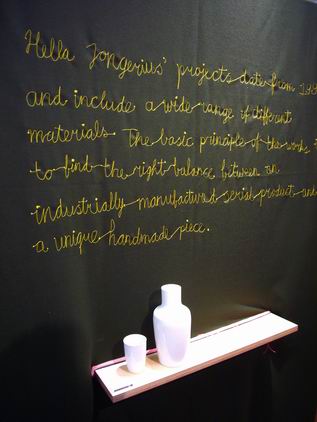 Hella Jongerius' projects date from
and include a wide range of different
materials. The basic principle of the works
to find the right balance between an
industrially manufactured serial product and
a unique handmade piece.